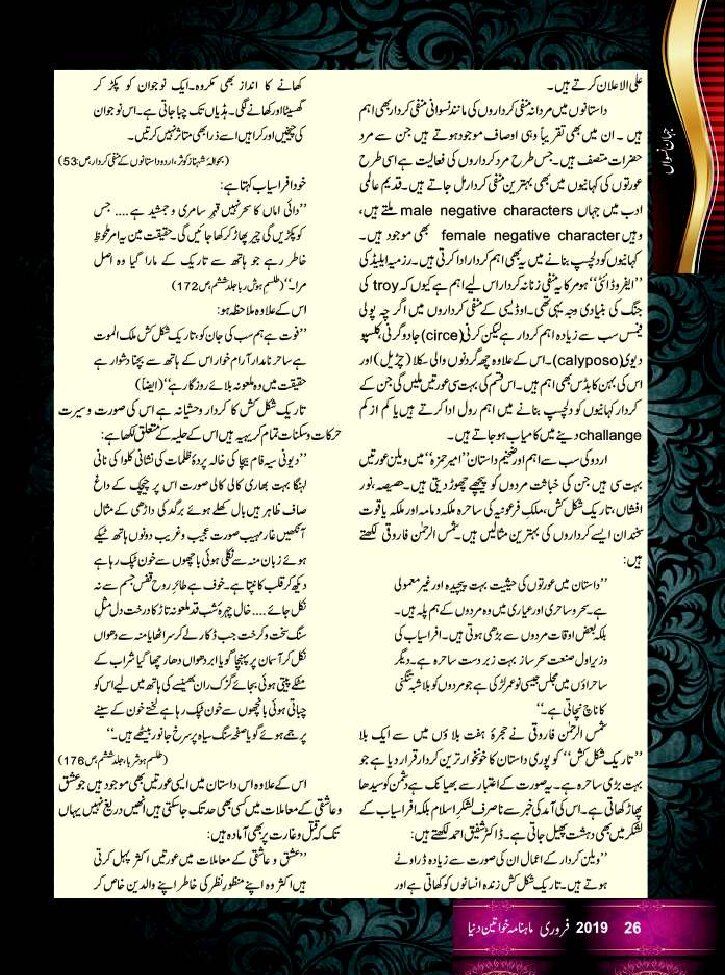 علی الاعلان کرتے ہیں۔
داستانوں میں مردانہ منفی کرداروں کی مانند نسوانی منفی کردار بھی اہم
ہیں۔ ان میں بھی تقریباً وہی اوصاف موجود ہوتے ہیں جن سے مرد
حضرات متصف ہیں۔ جس طرح مرد کرداروں کی فعالیت ہے اسی طرح
عورتوں کی کہانیوں میں بھی بہترین منفی کردار مل جاتے ہیں۔ قدیم عالمی
ادب میں جہاں male negative characters ملتے ہیں،
وہیں female negative character بھی موجود ہیں۔
کہانیوں کو دلچسپ بنانے میں یہ بھی اہم کردار ادا کرتی ہیں۔ رزمیہ ایلیڈ کی
''ایفروڈائٹی'' ہومر کا یہ منفی زنانہ کردار اس لیے اہم ہے کیوں کہ troy کی
جنگ کی بنیادی وجہ یہی تھی۔ اوڈیسی کے منفی کرداروں میں اگرچہ پولی
فیمس سب سے زیادہ اہم کردار ہے لیکن کرنی (circe) جادوگرنی کلسپو
دیوی (calyposo)۔ اس کے علاوہ چھ گردنوں والی سکلا (چڑیل) اور
اس کی بہن کابڈس بھی اہم ہیں۔ اس قسم کی بہت سی عورتیں ملیں گی جن کے
کردار کہانیوں کو دلچسپ بنانے میں اہم رول ادا کرتے ہیں یا کم از کم
challange دینے میں کامیاب ہو جاتے ہیں۔
اردو کی سب سے اہم اور ضخیم داستان ''امیر حمزہ'' میں ویلن عورتیں
بہت سی ہیں جن کی خباثت مردوں کو پیچھے چھوڑ دیتی ہیں۔ حصیصہ، نور
افشاں، تاریک شکل کش، ملک فرعونیہ کی ساحرہ ملکہ دمامہ اور ملکہ یاقوت
سخنداں ایسے کرداروں کی بہترین مثالیں ہیں۔ شمس الرحمٰن فاروقی لکھتے
ہیں:
''داستان میں عورتوں کی حیثیت بہت پیچیدہ اور غیر معمولی
ہے۔ سحر و ساحری اور عیاری میں وہ مردوں کے ہم پلہ ہیں۔
بلکہ بعض اوقات مردوں سے بڑھی ہوتی ہیں۔ افراسیاب کی
وزیر اول صنعت سحر ساز بہت زبردست ساحرہ ہے۔ دیگر
ساحراؤں میں مجلس جیسی نو عمر لڑکی ہے جو مردوں کو بلا شبہ تگنی
کا ناچ نچاتی ہے۔''
شمس الرحمٰن فاروقی نے حجرۂ ہفت بلاؤں میں سے ایک بلا
''تاریک شکل کش'' کو پوری داستان کا خونخوار ترین کردار قرار دیا ہے جو
بہت بڑی ساحرہ ہے۔ یہ صورت کے اعتبار سے بھیانک ہے دشمن کو سیدھا
پھاڑ کھاتی ہے۔ اس کی آمد کی خبر سے نا صرف لشکر اسلام بلکہ افراسیاب کے
لشکر میں بھی دہشت پھیل جاتی ہے۔ ڈاکٹر شفیق احمد لکھتے ہیں:
''ویلن کردار کے اعمال ان کی صورت سے زیادہ ڈراونے
ہوتے ہیں۔ تاریک شکل کش زندہ انسانوں کو کھاتی ہے اور
کھانے کا انداز بھی مکروہ۔ ایک نوجوان کو پکڑ کر
گھسیٹا اور کھانے لگی۔ ہڈیاں تک چبا جاتی ہے۔ اس نوجوان
کی چیخیں اور کراہیں اسے ذرا بھی متاثر نہیں کرتیں۔
(بحوالہ شہناز کوثر، اردو داستانوں کے منفی کردار، ص:53)
خود افراسیاب کہتا ہے:
''دائی اماں کا سحر نہیں قہر سامری و جمشید ہے.... جس
کو پکڑیں گی چیر پھاڑ کر کھا جائیں گی۔ حقیقت میں یہ امر ملحوظ
خاطر رہے جو ہاتھ سے تاریک کے مارا گیا وہ اصل
مرا۔'' (طلسم ہوش ربا جلد ششم، ص172)
اس کے علاوہ ملاحظہ ہو:
''فوت ہے ہم سب کی جان کو، تاریک شکل کش ملک الموت
ہے ساحر نامدار آرام خوار اس کے ہاتھ سے بچنا دشوار ہے
حقیقت میں وہ ملعونہ بلائے روزگار ہے'' (ایضاً)
تاریک شکل کش کا کردار وحشیانہ ہے اس کی صورت و سیرت
حرکات و سکنات تمام کریہہ ہیں اس کے حلیہ کے متعلق لکھا ہے:
''دیونی سیہ فام بیچا کی خالہ پردۂ ظلمات کی نشانی کلوا کی نانی
لہنگا بہت بھاری کالی کالی صورت اس پر چیچک کے داغ
صاف ظاہر ہیں بال کھلے ہوئے برگد کی داڑھی کے مثال
آنکھیں غار مہیب صورت عجیب و غریب دونوں ہاتھ ٹیکے
ہوئے زبان منہ سے نکلی ہوئی باچھوں سے خون ٹپک رہا ہے
دیکھ کر قلب کانپتا ہے۔ خوف ہے طائر روح قفس جسم سے نہ
نکل جائے.... خال چہرۂ شب قد ملعونہ تاڑ کا درخت دل مثل
سنگ سخت و کرخت جب ڈکار لے کر سر اٹھایا منہ سے دھواں
نکل کر آسمان پر پہنچا گویا ابر دھواں دھار چھا گیا شراب کے
مٹکے پیتی ہوئی بجائے گزک ران بھینسے کی ہاتھ میں لیے اس کو
چباتی ہوئی باچھوں سے خون ٹپک رہا ہے لختے خون کے سینے
پر جمے ہوئے گویا صفحہ سنگ سیاہ پر سرخ جانور بیٹھے ہیں۔''
(طلسم ہوشربا، جلد ششم، ص176)
اس کے علاوہ اس داستان میں ایسی عورتیں بھی موجود ہیں جو عشق
و عاشقی کے معاملات میں کسی بھی حد تک جا سکتی ہیں انھیں دریغ نہیں یہاں
تک کہ قتل و غارت پر بھی آمادہ ہیں:
''عشق و عاشقی کے معاملات میں عورتیں اکثر پہل کرتی
ہیں اکثر وہ اپنے منظور نظر کی خاطر اپنے والدین خاص کر
جہان نسواں
26 2019 فروری ماہنامہ خواتین دنیا